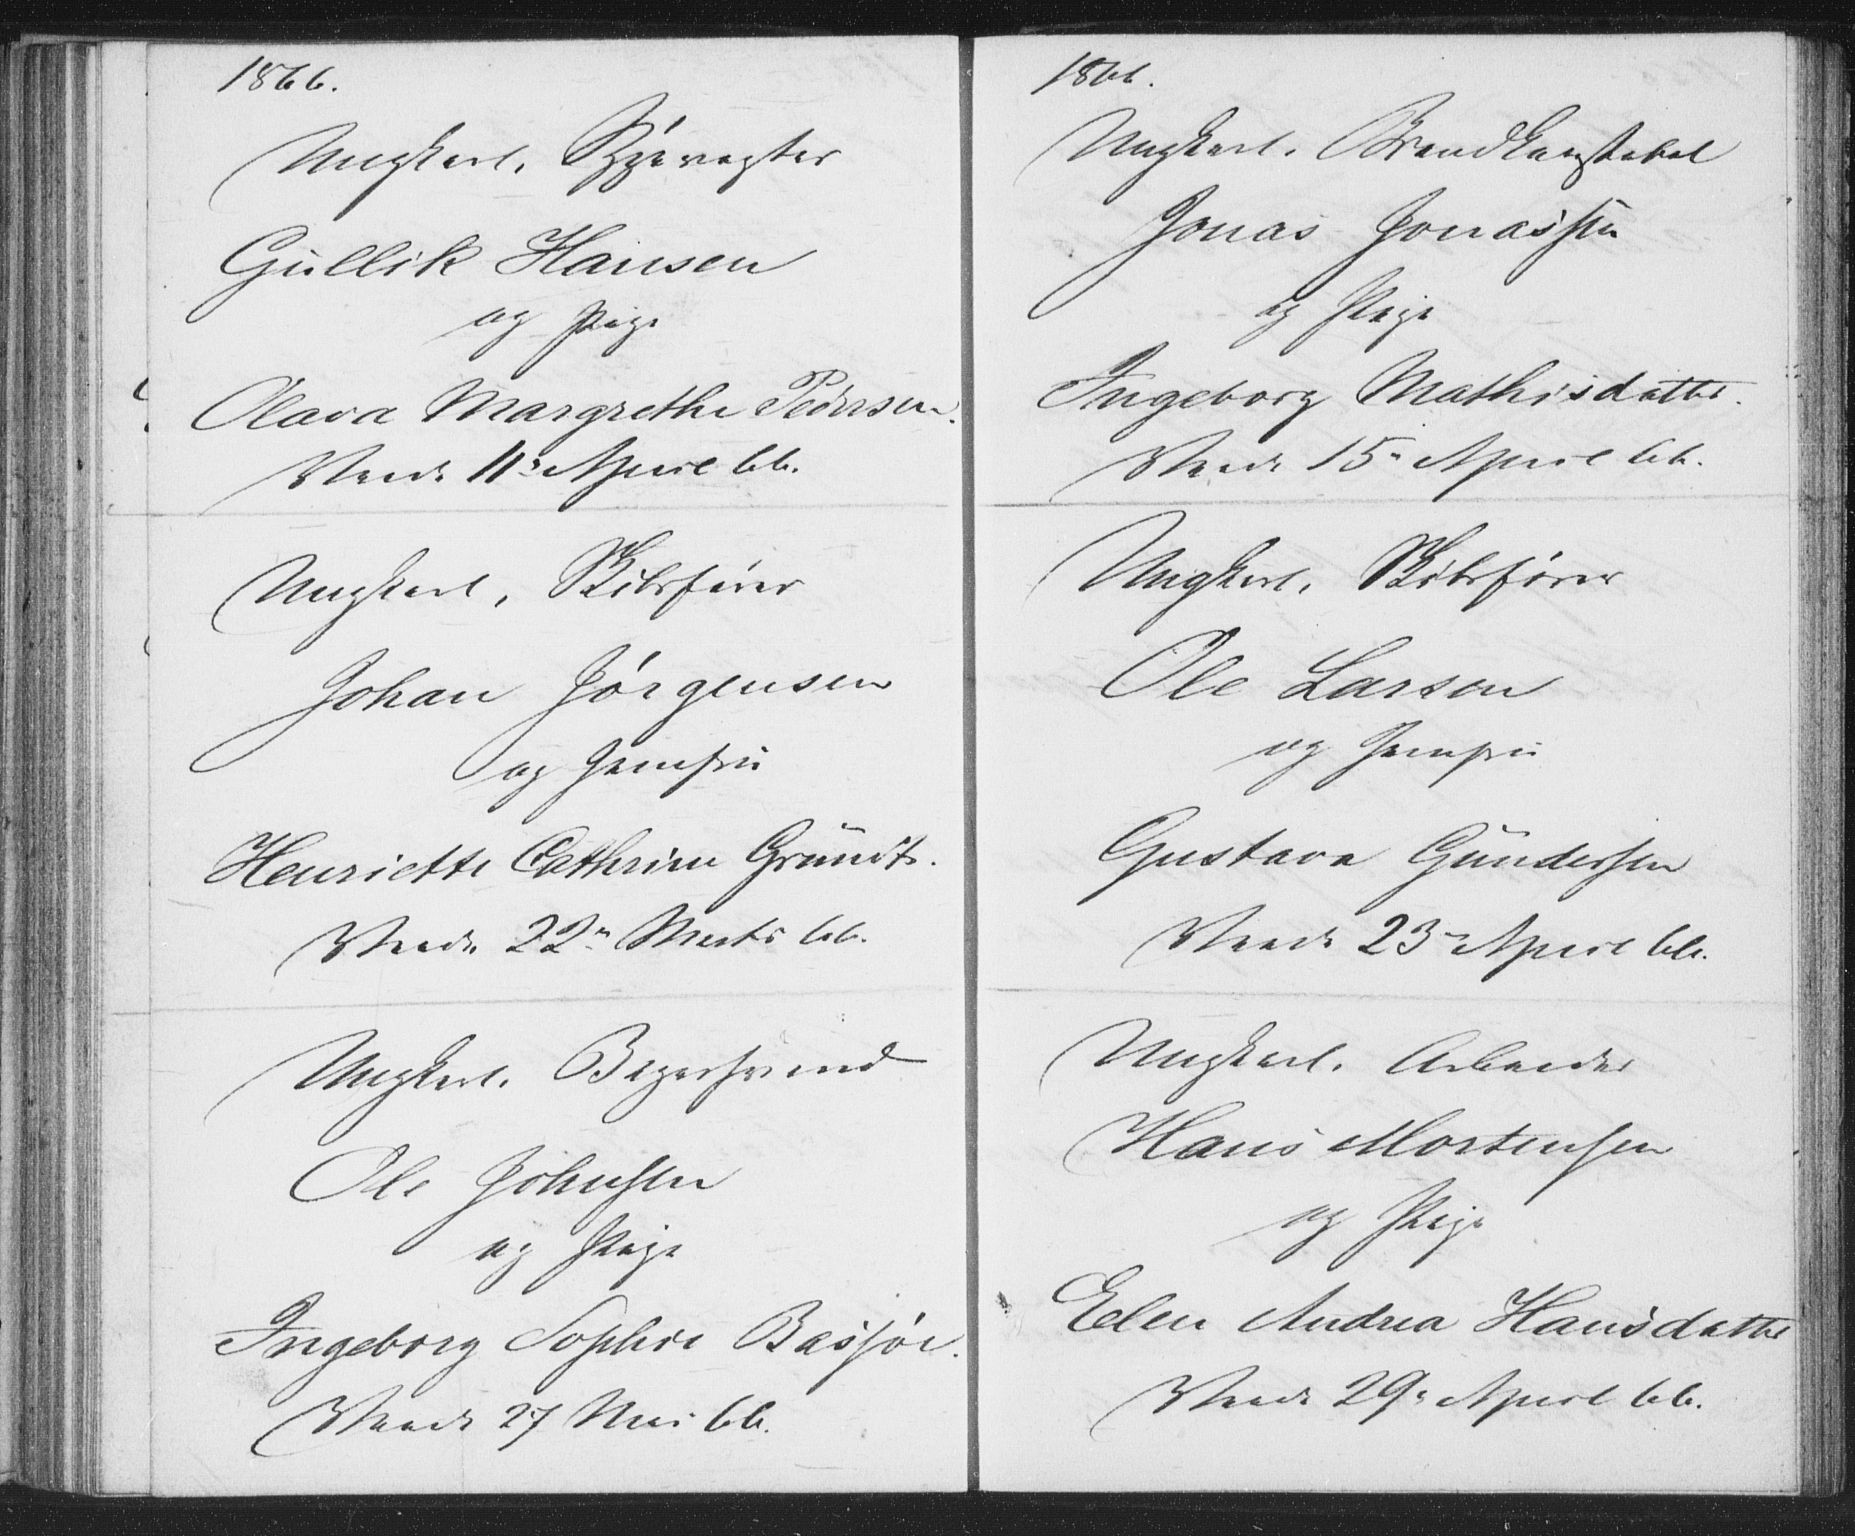 1866.
Ungkarl. Spigervagter
Gullik Hansen
og Pige
Olava Margrethe Pedersen.
Viede 11te April 66.
Ungkarl, Skibsfører
Johan Jørgensen
og Jomfru
Henriette Cathrine Grundt.
Viede 22de Marts 66.
Ungkarl. Bagersvend
Ole Johnsen
og Pige
Ingeborg Sophie Bassøe.
Viede 27 Mai 66.
1866.
Ungkarl. Brandkonstabel
Jonas Jonassen
og Pige
Ingeborg Mathisdatter.
Viede 15de April 66.
Ungkarl. Skibsfører
Ole Larsen
og Jomfru
Gustava Gundersen
Viede 23de April 66.
Ungkarl. Arbeider
Hans Mortensen
og Pige
Elen Andrea Hansdatter
Viede 29de April 66.